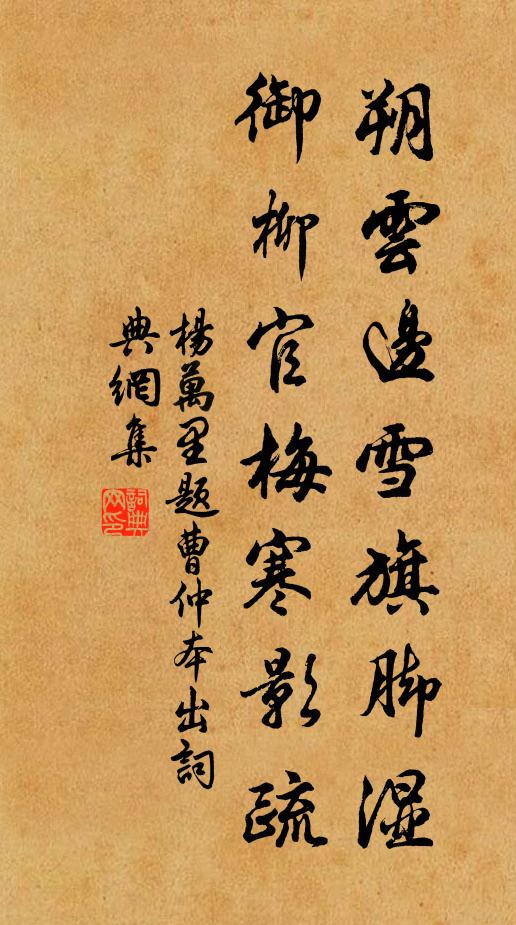 朔雲邊雪旗脚湿
御柳官梅寒影疏
楊萬里題曹仲本出詞
典網集
詞典網印